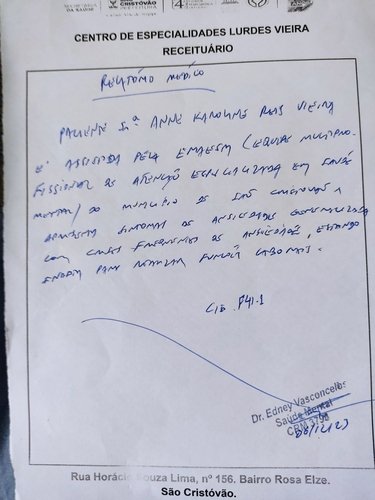 SECRETARIA
DA SAÚDE
CRISTÓVÃO
PREFEITURA
CENTRO DE ESPECIALIDADES LURDES VIEIRA
RECEITUÁRIO
RELATÓRIO MÉDICO
PACIENTE Sr.ª ANNE KAROLINE VIEIRA
É ASSISTIDA PELA EMAESM (EQUIPE MULTIPRO-
FISSIONAL DE ATENÇÃO ESPECIALIZADA EM SAÚDE
MENTAL) DO MUNICÍPIO DE SÃO CRISTÓVÃO
SINTOMAS DE ANSIEDADE GENERALIZADA
COM CRISES FREQUENTES DE ANSIEDADE, ESTANDO
PARA REALIZAR LABORAIS.
CID F41.1
Dr. Edney Vasconcelos
Saúde Mental
CRM 3798
06/12/23
Rua Horácio Souza Lima, nº 156. Bairro Rosa Elze.
São Cristóvão.